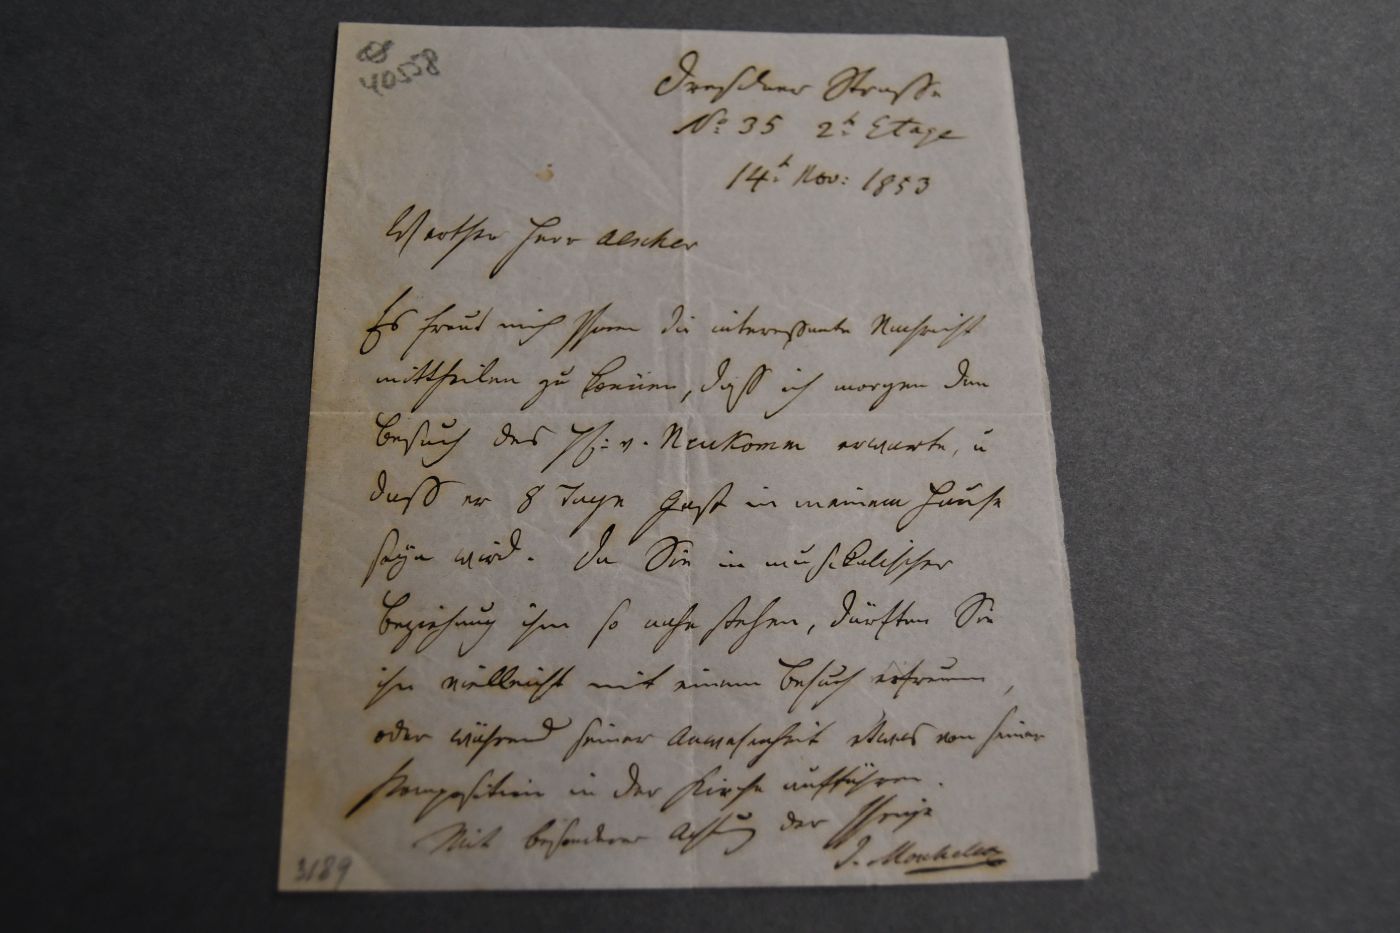 40558
Dresdner Strasse
No 35 2t. Etage
14t. Nov: 1853
Werther Herr Alscher
Es freut mich Ihnen die interessante Nachricht
mittheilen zu können, dass ich morgen den
Besuch des v. Neukomm erwarte, u
dass er 8 Tage Gast in meinem Hause
seÿn wird. Da Sie in musikalischer
Beziehung ihm so nahe stehen, dürften Sie
ihn vielleicht mit einem Besuch erfreuen,
oder während seiner Anwesenheit etwas von seiner
Komposition in der Kirche aufführen.
Mit besonderer Achtung der Ihrige
J. Moscheles
3189